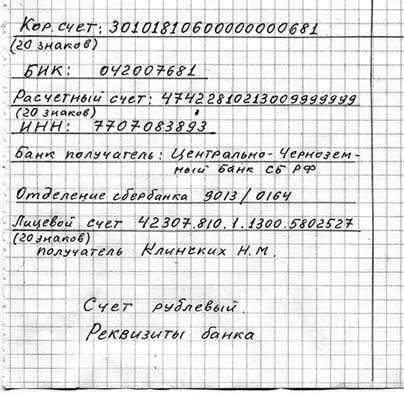 Кор. счет: 30101810600000000681
(20 знаков)
БИК: 042007681
Расчетный счет: 47422810213009999999
(20 знаков)
ИНН: 7707083893
Банк получатель: Центрально-Чернозем-
ный банк СБ РФ
Отделение сбербанка 9013/0164
Лицевой счет 42307.810.1.1300.5802527
(20 знаков)
получатель Клинских Н.М.
Счет рублевый.
Реквизиты банка